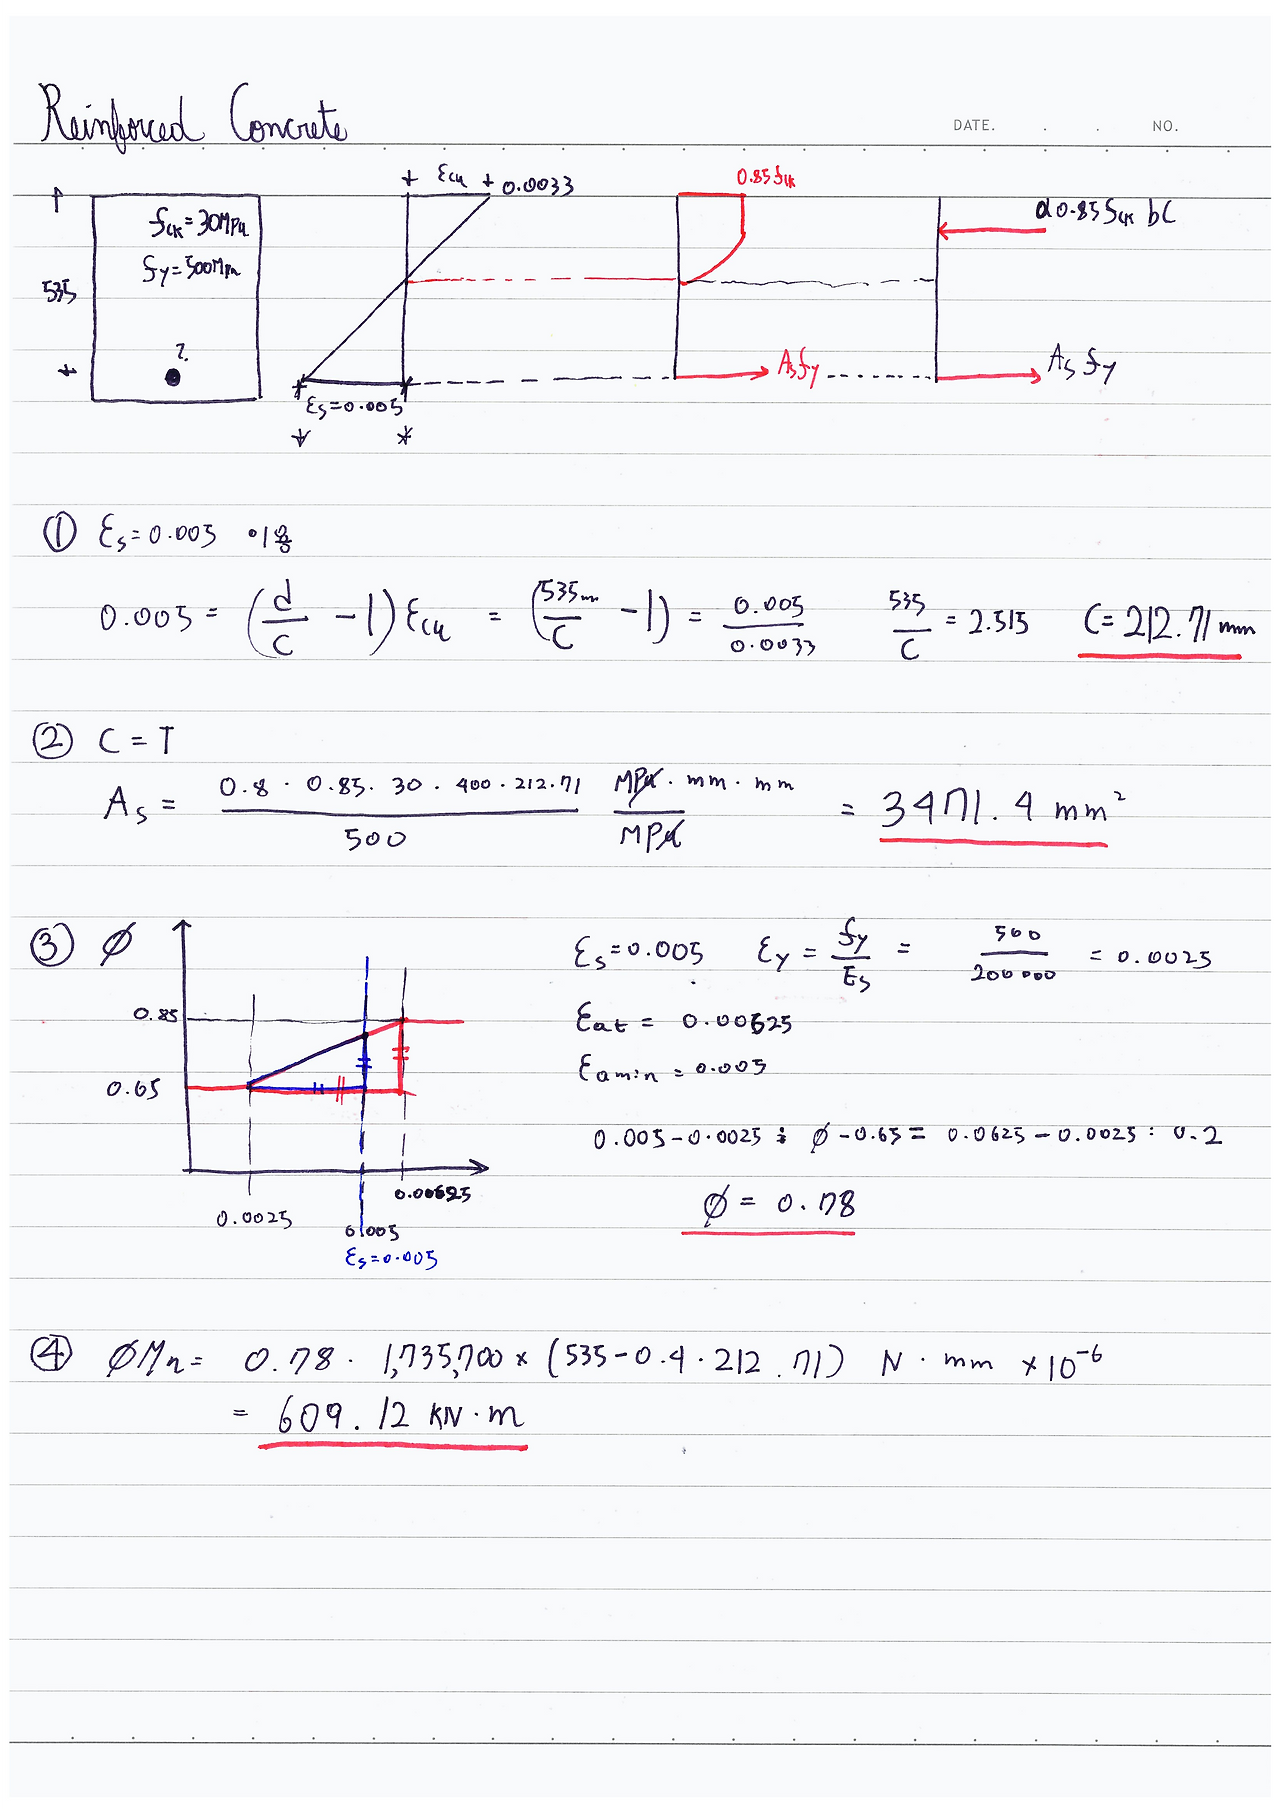 Reinforced Concrete
DATE. . . NO.
εcu 0.0033
0.85fck
α0.85fck bC
fck=30MPa
fy=500MPa
535
?
εs=0.005
Asfy
As fy
① εs=0.005 일 때
0.005 = (d/c - 1) εcu = (535mm/C - 1) = 0.005/0.0033 535/C = 2.515 C=212.71mm
② C = T
As = 0.8 · 0.85 · 30 · 400 · 212.71 / 500 MPa · mm · mm / MPa = 3471.4 mm²
③ ø
0.85
0.65
0.0025
0.005
0.00625
εs=0.005
εs=0.005 εy = fy/Es = 500/200000 = 0.0025
εat = 0.00625
εamin = 0.005
0.005-0.0025 : ø-0.65 = 0.0625-0.0025 : 0.2
ø = 0.78
④ øMn = 0.78 · 1,735,700 × (535-0.4·212.71) N·mm ×10⁻⁶
= 609.12 kN·m